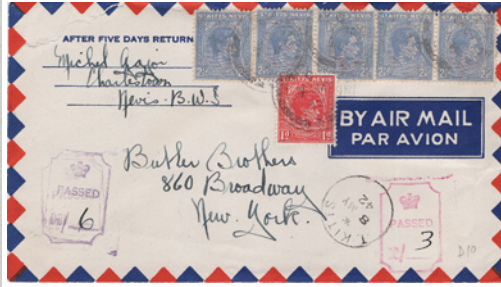 AFTER FIVE DAYS RETURN
Michel
Charlestown
Nevis. B.W.I
ST KITTS NEVIS
1d 1d
BY AIR MAIL
PAR AVION
Butler Brothers
860 Broadway
New York.
PASSED
6
ST. KITTS
8
42
PASSED
3
D10